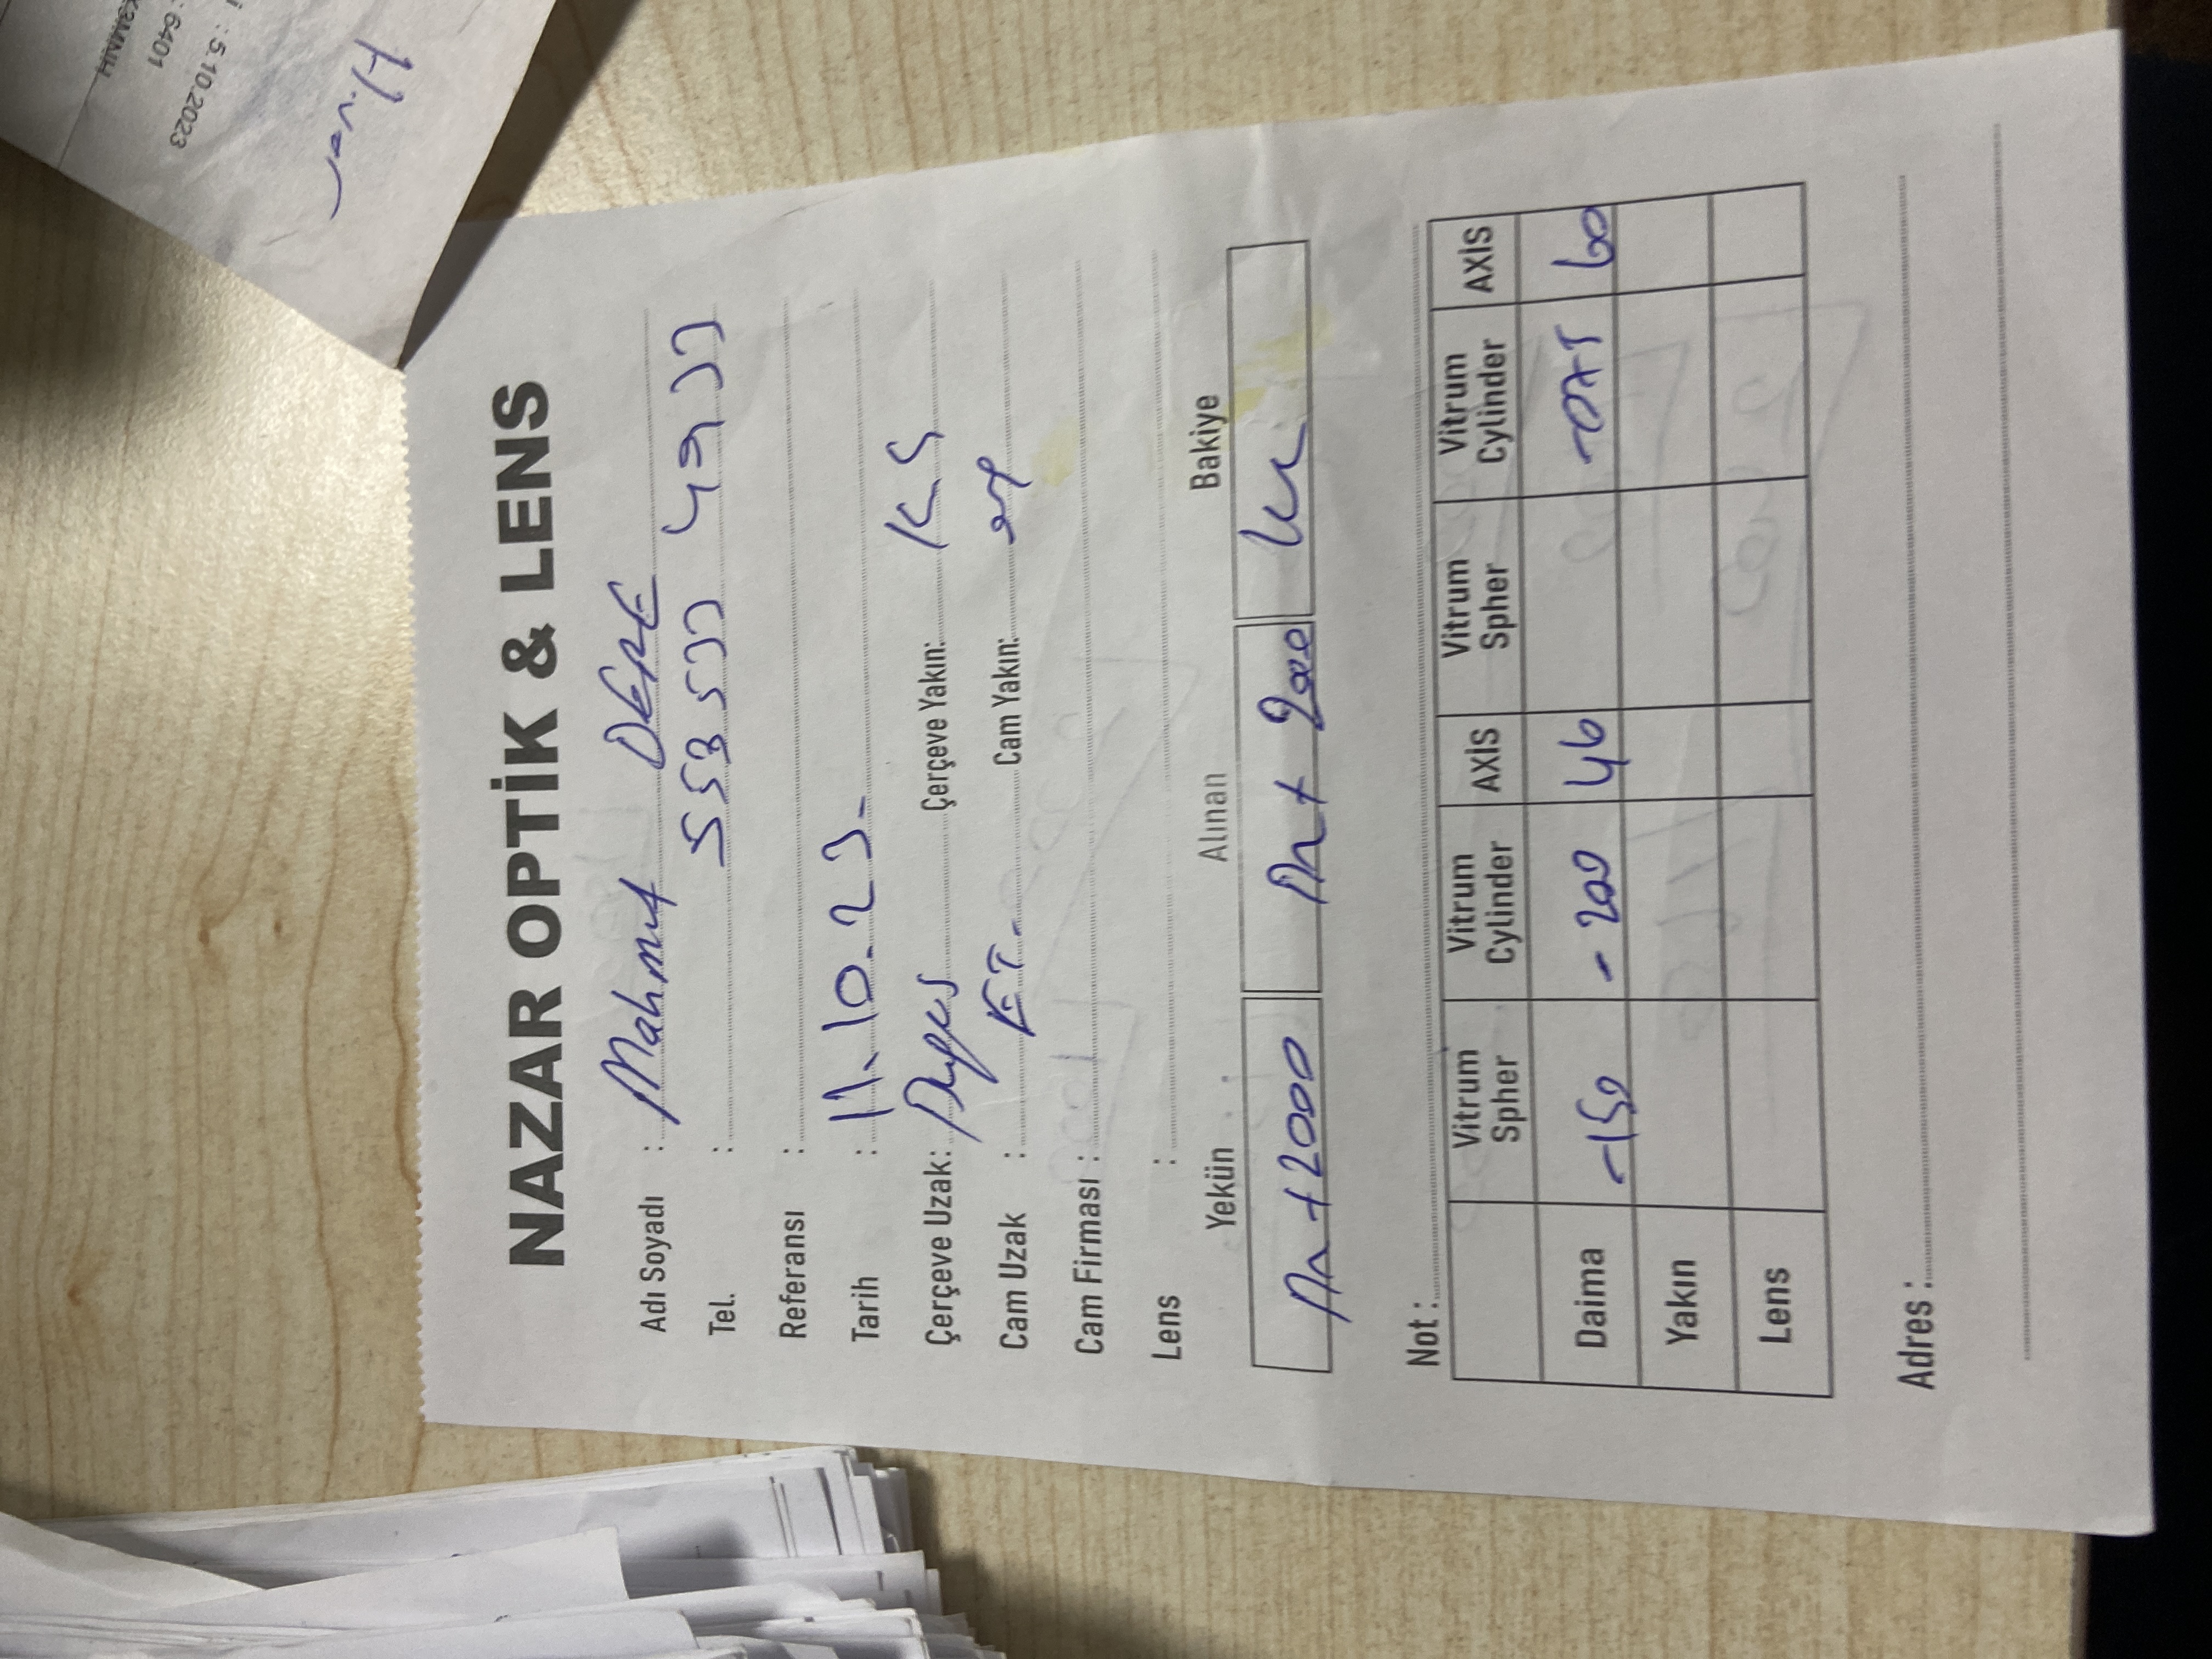 NAZAR OPTİK & LENS
Adı Soyadı : Mahmut DERE
Tel. : 553 533 49 33
Referansı :
Tarih : 11.10.23.
Çerçeve Uzak: Çerçeve Yakın:
Cam Uzak : Cam Yakın:
Cam Firması :
Lens :
Yekün Alınan Bakiye
+2000 + 2000
Not :
Vitrum Spher Vitrum Cylinder AXİS Vitrum Spher Vitrum Cylinder AXİS
Daima -150 -200 46 -075 60
Yakın
Lens
Adres :
: 5.10.2023
: 6401